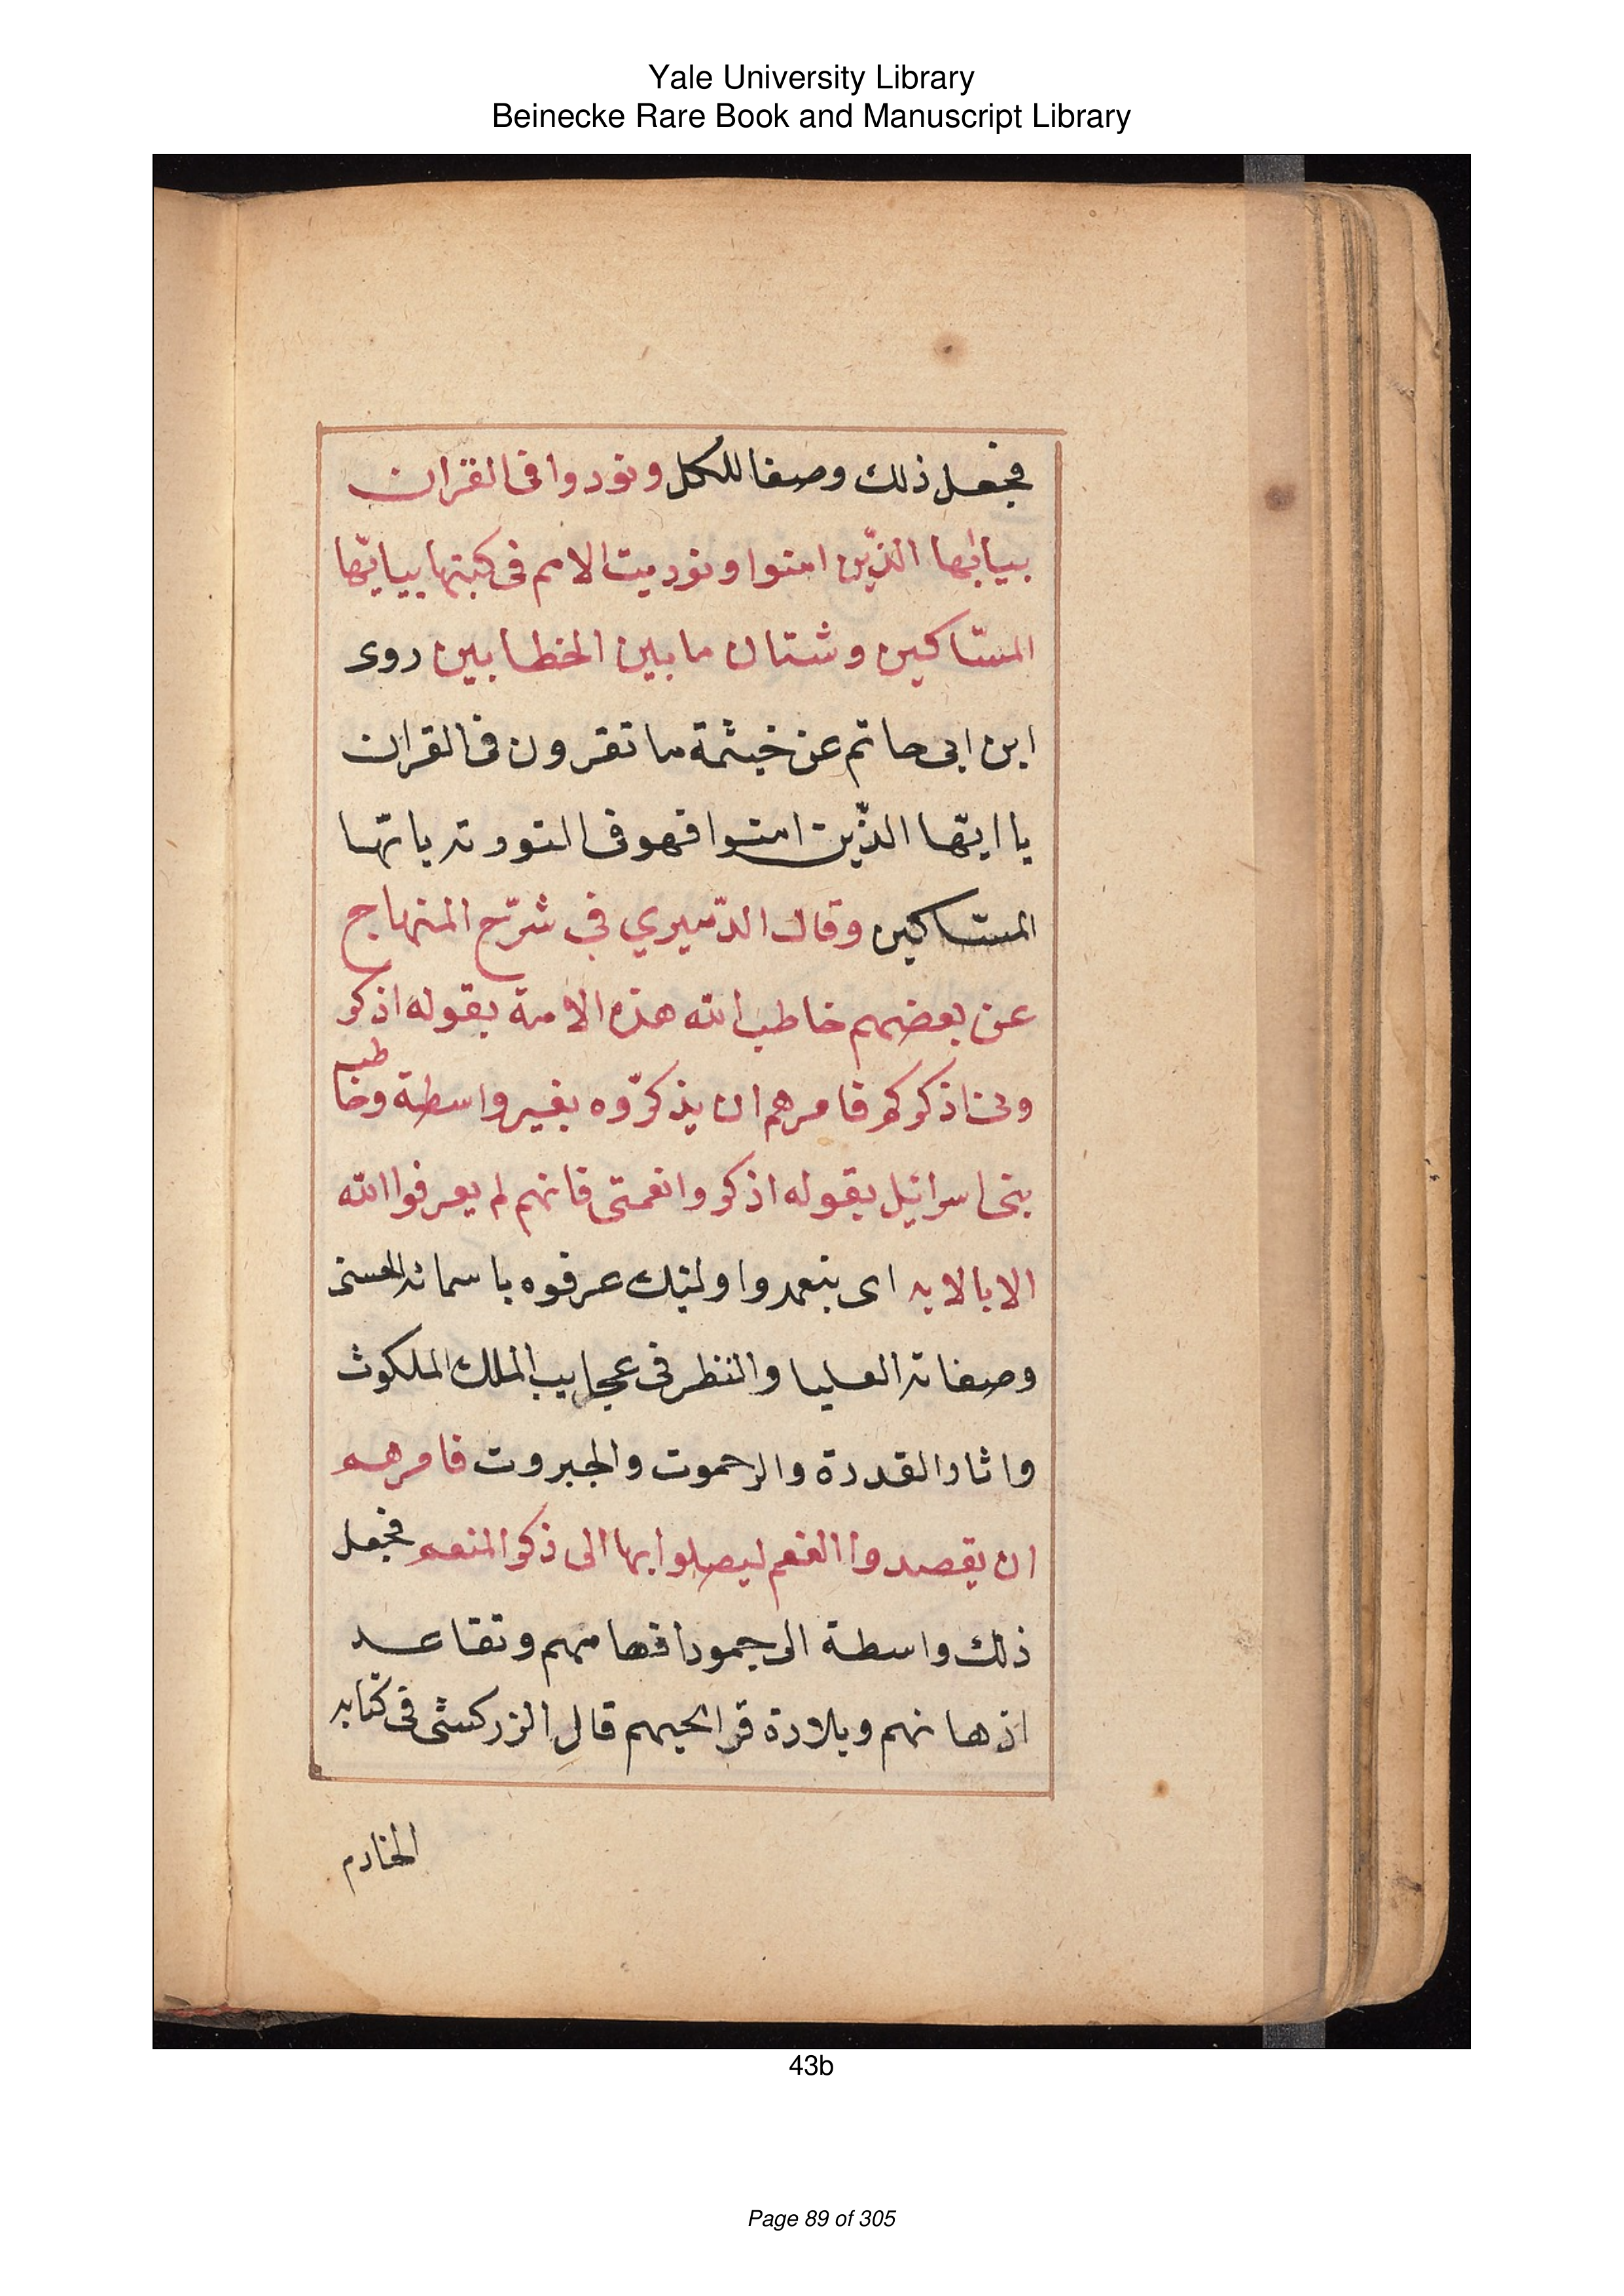 Yale University Library
Beinecke Rare Book and Manuscript Library
فجعل ذلك وصفا للكل ونودوا فى القران
بيايها الذين امنوا ونوديت الامم فى كتبها بيايها
المساكين وشتان ما بين الخطابين روى
ابن ابى حاتم عن خيثمة ما تقرون فى القران
يا ايها الذين امنوا فهو فى التورته يا يها
المساكين وقال الدميري في شرح المنهاج
عن بعضهم خاطب الله هذه الامة بقوله اذكرو
ونى اذكركم فامرهم ان يذكروه بغير واسطة وخاطب
بنى اسرائيل بقوله اذكروا نعمتى فانهم لم يعرفوا الله
الا بالايه اى بنعمه واولئك عرفوه باسمائه الحسنى
وصفاته العليا والنظر فى عجايب الملك الملكوث
واثار القدرة والرحموت والجبروت فامرهم
ان يقصدوا النعم ليصلوا بها الى ذكر المنعم فجعل
ذلك واسطة الى جمود افهامهم وتقاعد
اذهانهم وبلادة قرايحهم قال الزركشى فى كتابه
الخادم
43b
Page 89 of 305